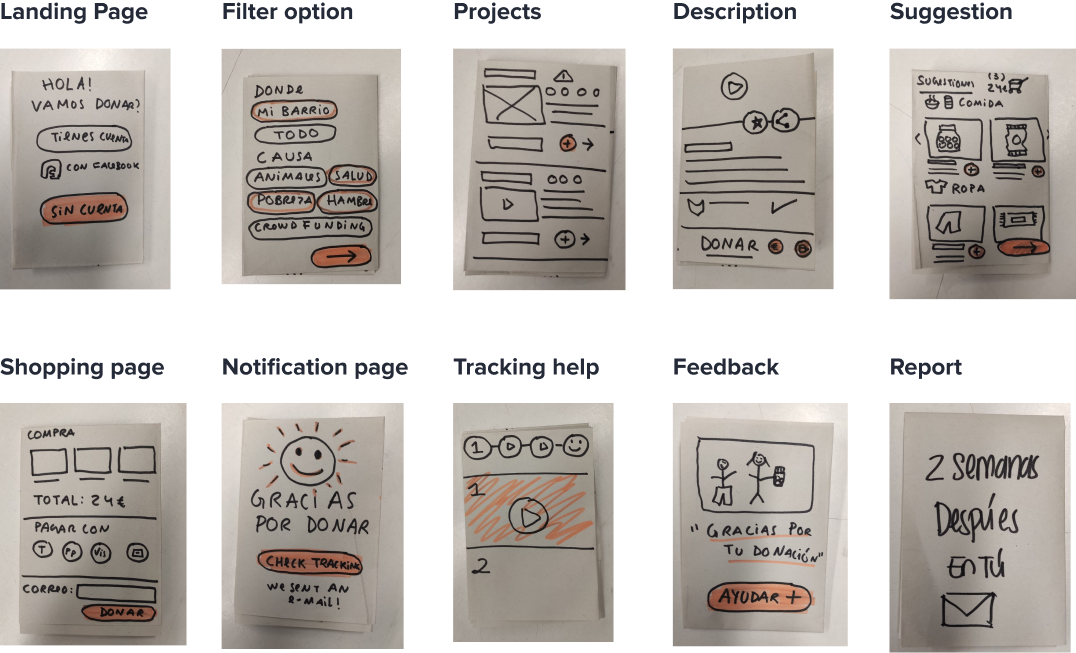 Landing Page
HOLA!
VAMOS DONAR?
TIENES CUENTA
CON FACEBOOK
SIN CUENTA
Filter option
DONDE
MI BARRIO
TODO
CAUSA
ANIMALES SALUD
POBREZA HAMBRE
CROWDFUNDING
Projects
Description
DONAR €
Suggestion
SUGESTIONES (3)
24€
COMIDA
ROPA
Shopping page
COMPRA
TOTAL: 24€
PAGAR CON
T PP Vis
CORREO:
DONAR
Notification page
GRACIAS
POR DONAR
CHECK TRACKING
WE SENT AN
e-MAIL!
Tracking help
1
1
2
Feedback
"GRACIAS POR
TU DONACIÓN"
AYUDAR +
Report
2 Semanas
Despúes
EN TÚ